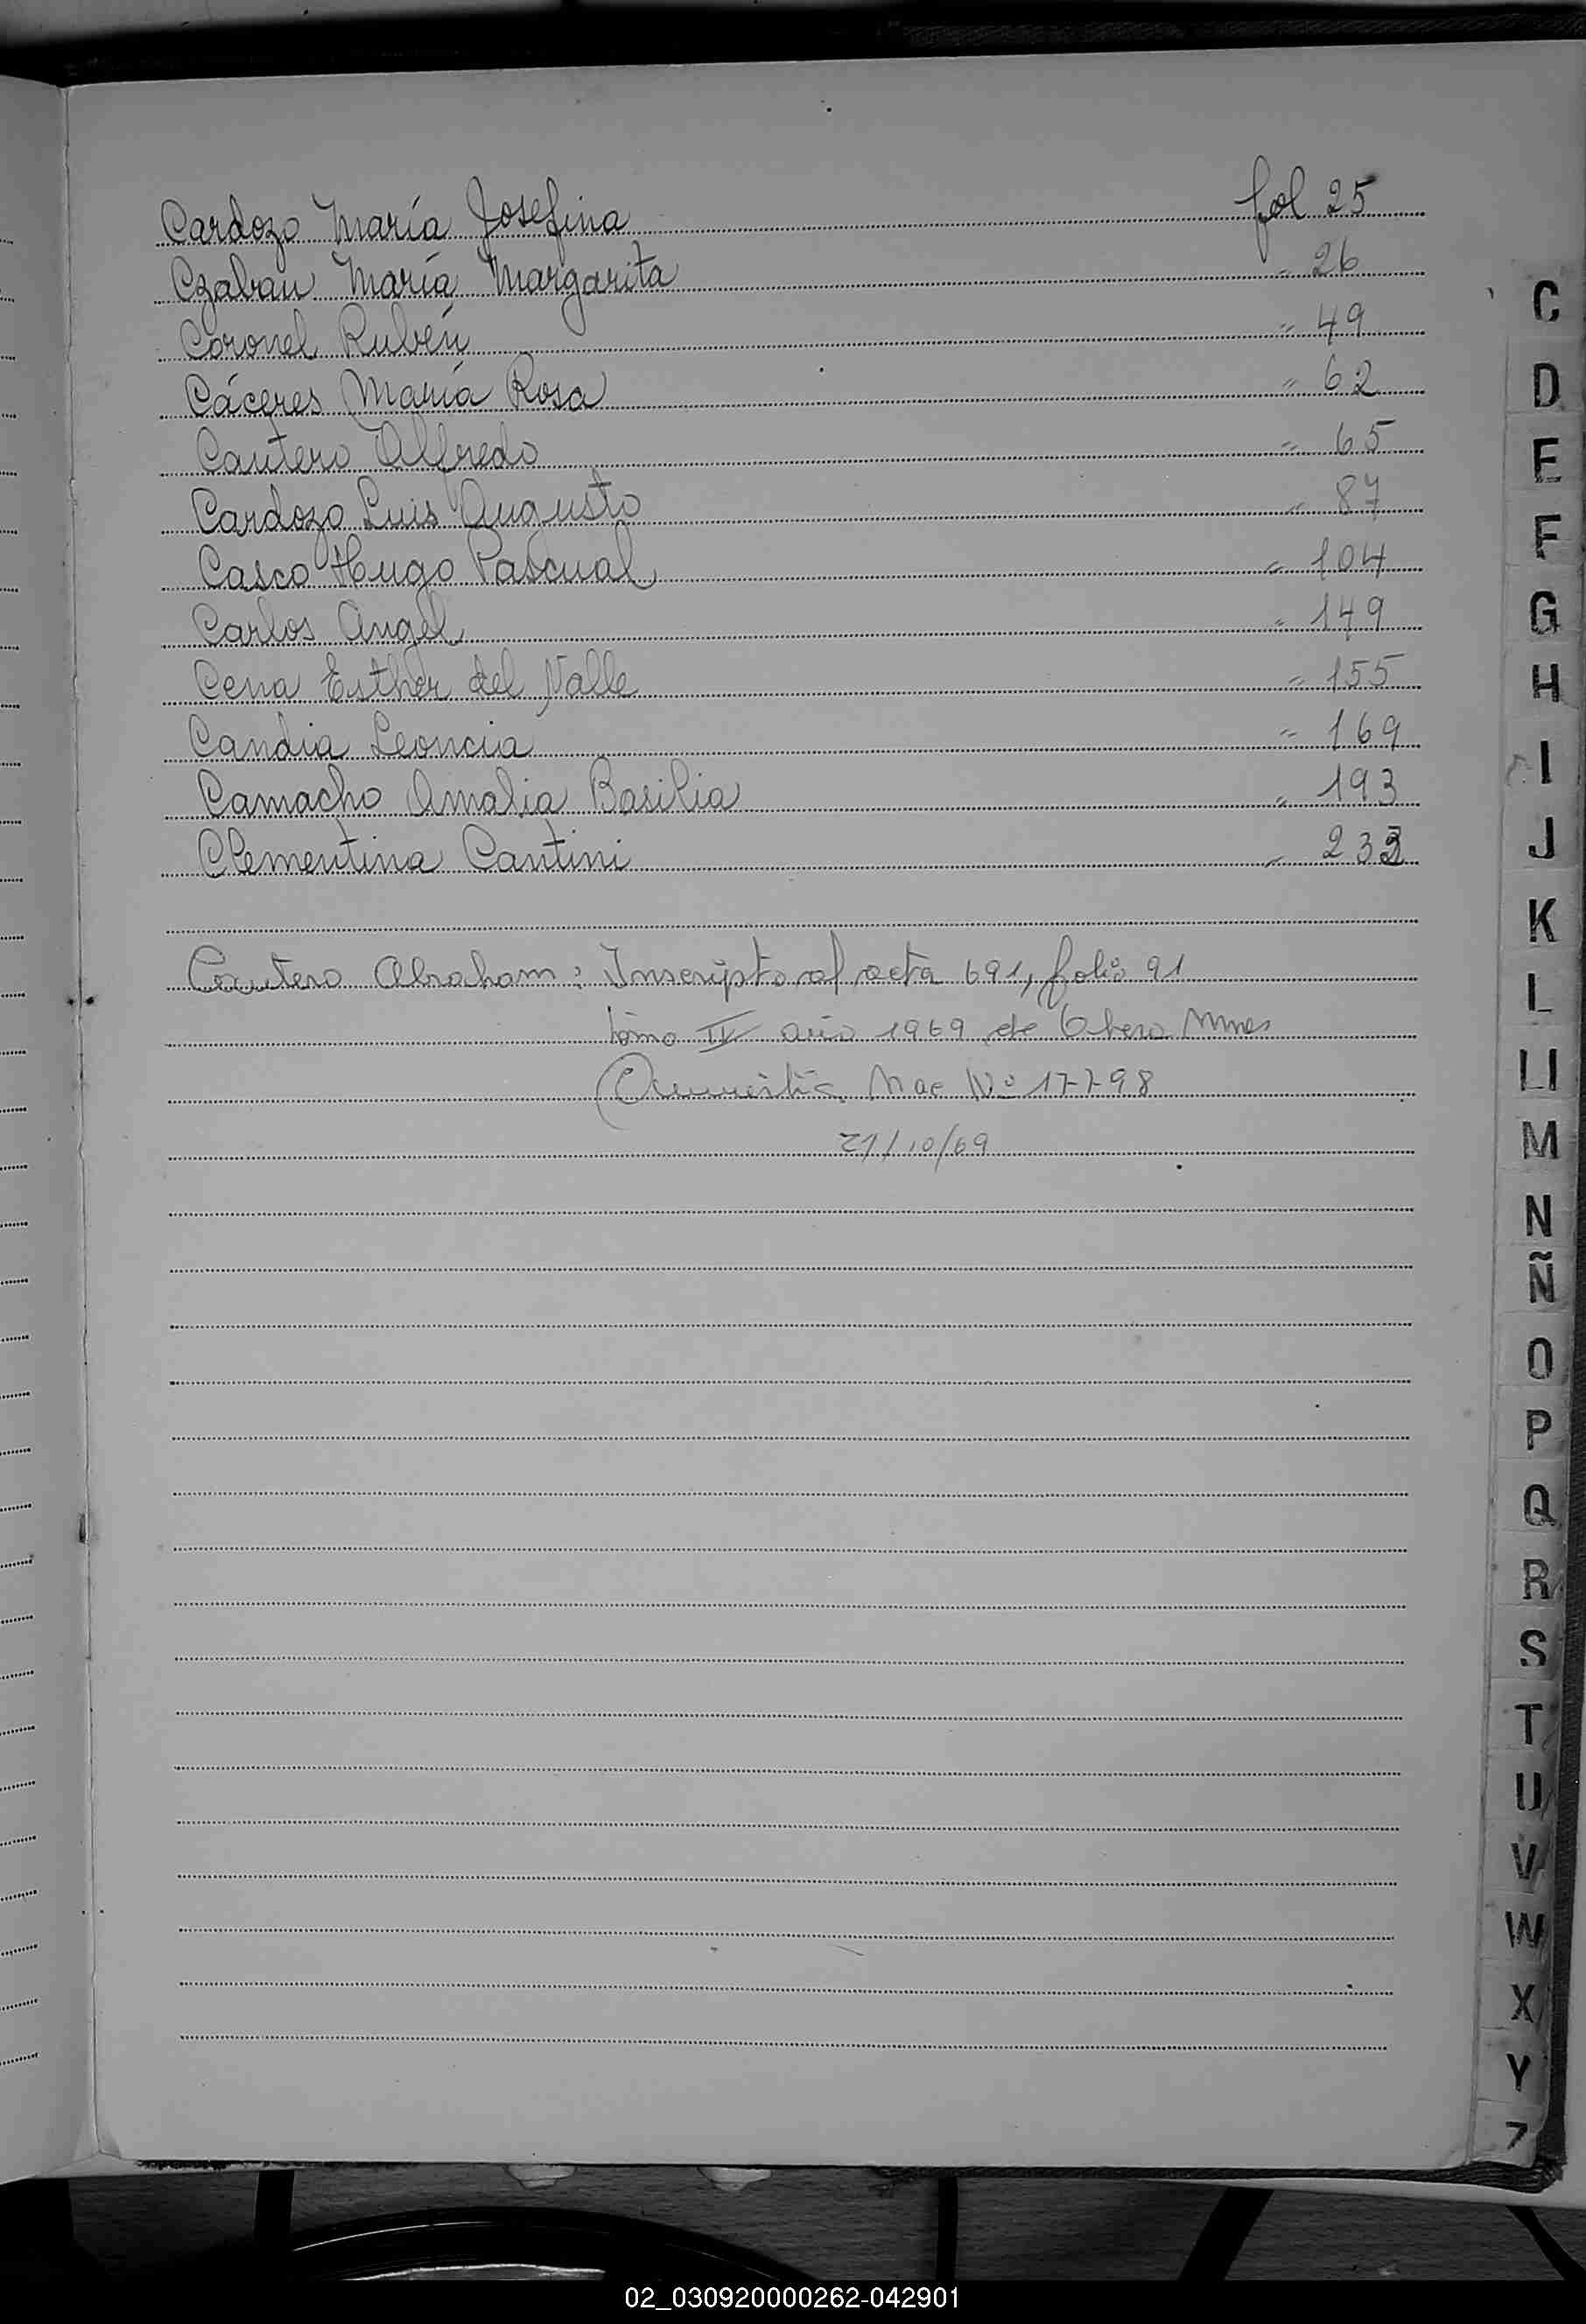 Cardozo María Josefina fol 25
Czaban María Margarita " 26
Coronel Rubén " 49
Cáceres María Rosa " 62
Cantero Alfredo " 65
Cardozo Luis Augusto " 87
Casco Hugo Pascual " 104
Carlos Angel " 149
Cena Esther del Valle " 155
Candia Leoncia " 169
Camacho Amalia Basilia " 193
Clementina Cantini " 233
Cantero Abraham: Inscripto al acta 691, folio 91
tomo IV año 1969 de Obera Mnes
Nac Nº 17-7-98
21/10/69
C
D
E
F
G
H
I
J
K
L
Ll
M
N
Ñ
O
P
Q
R
S
T
U
V
W
X
Y
Z
02_030920000262-042901